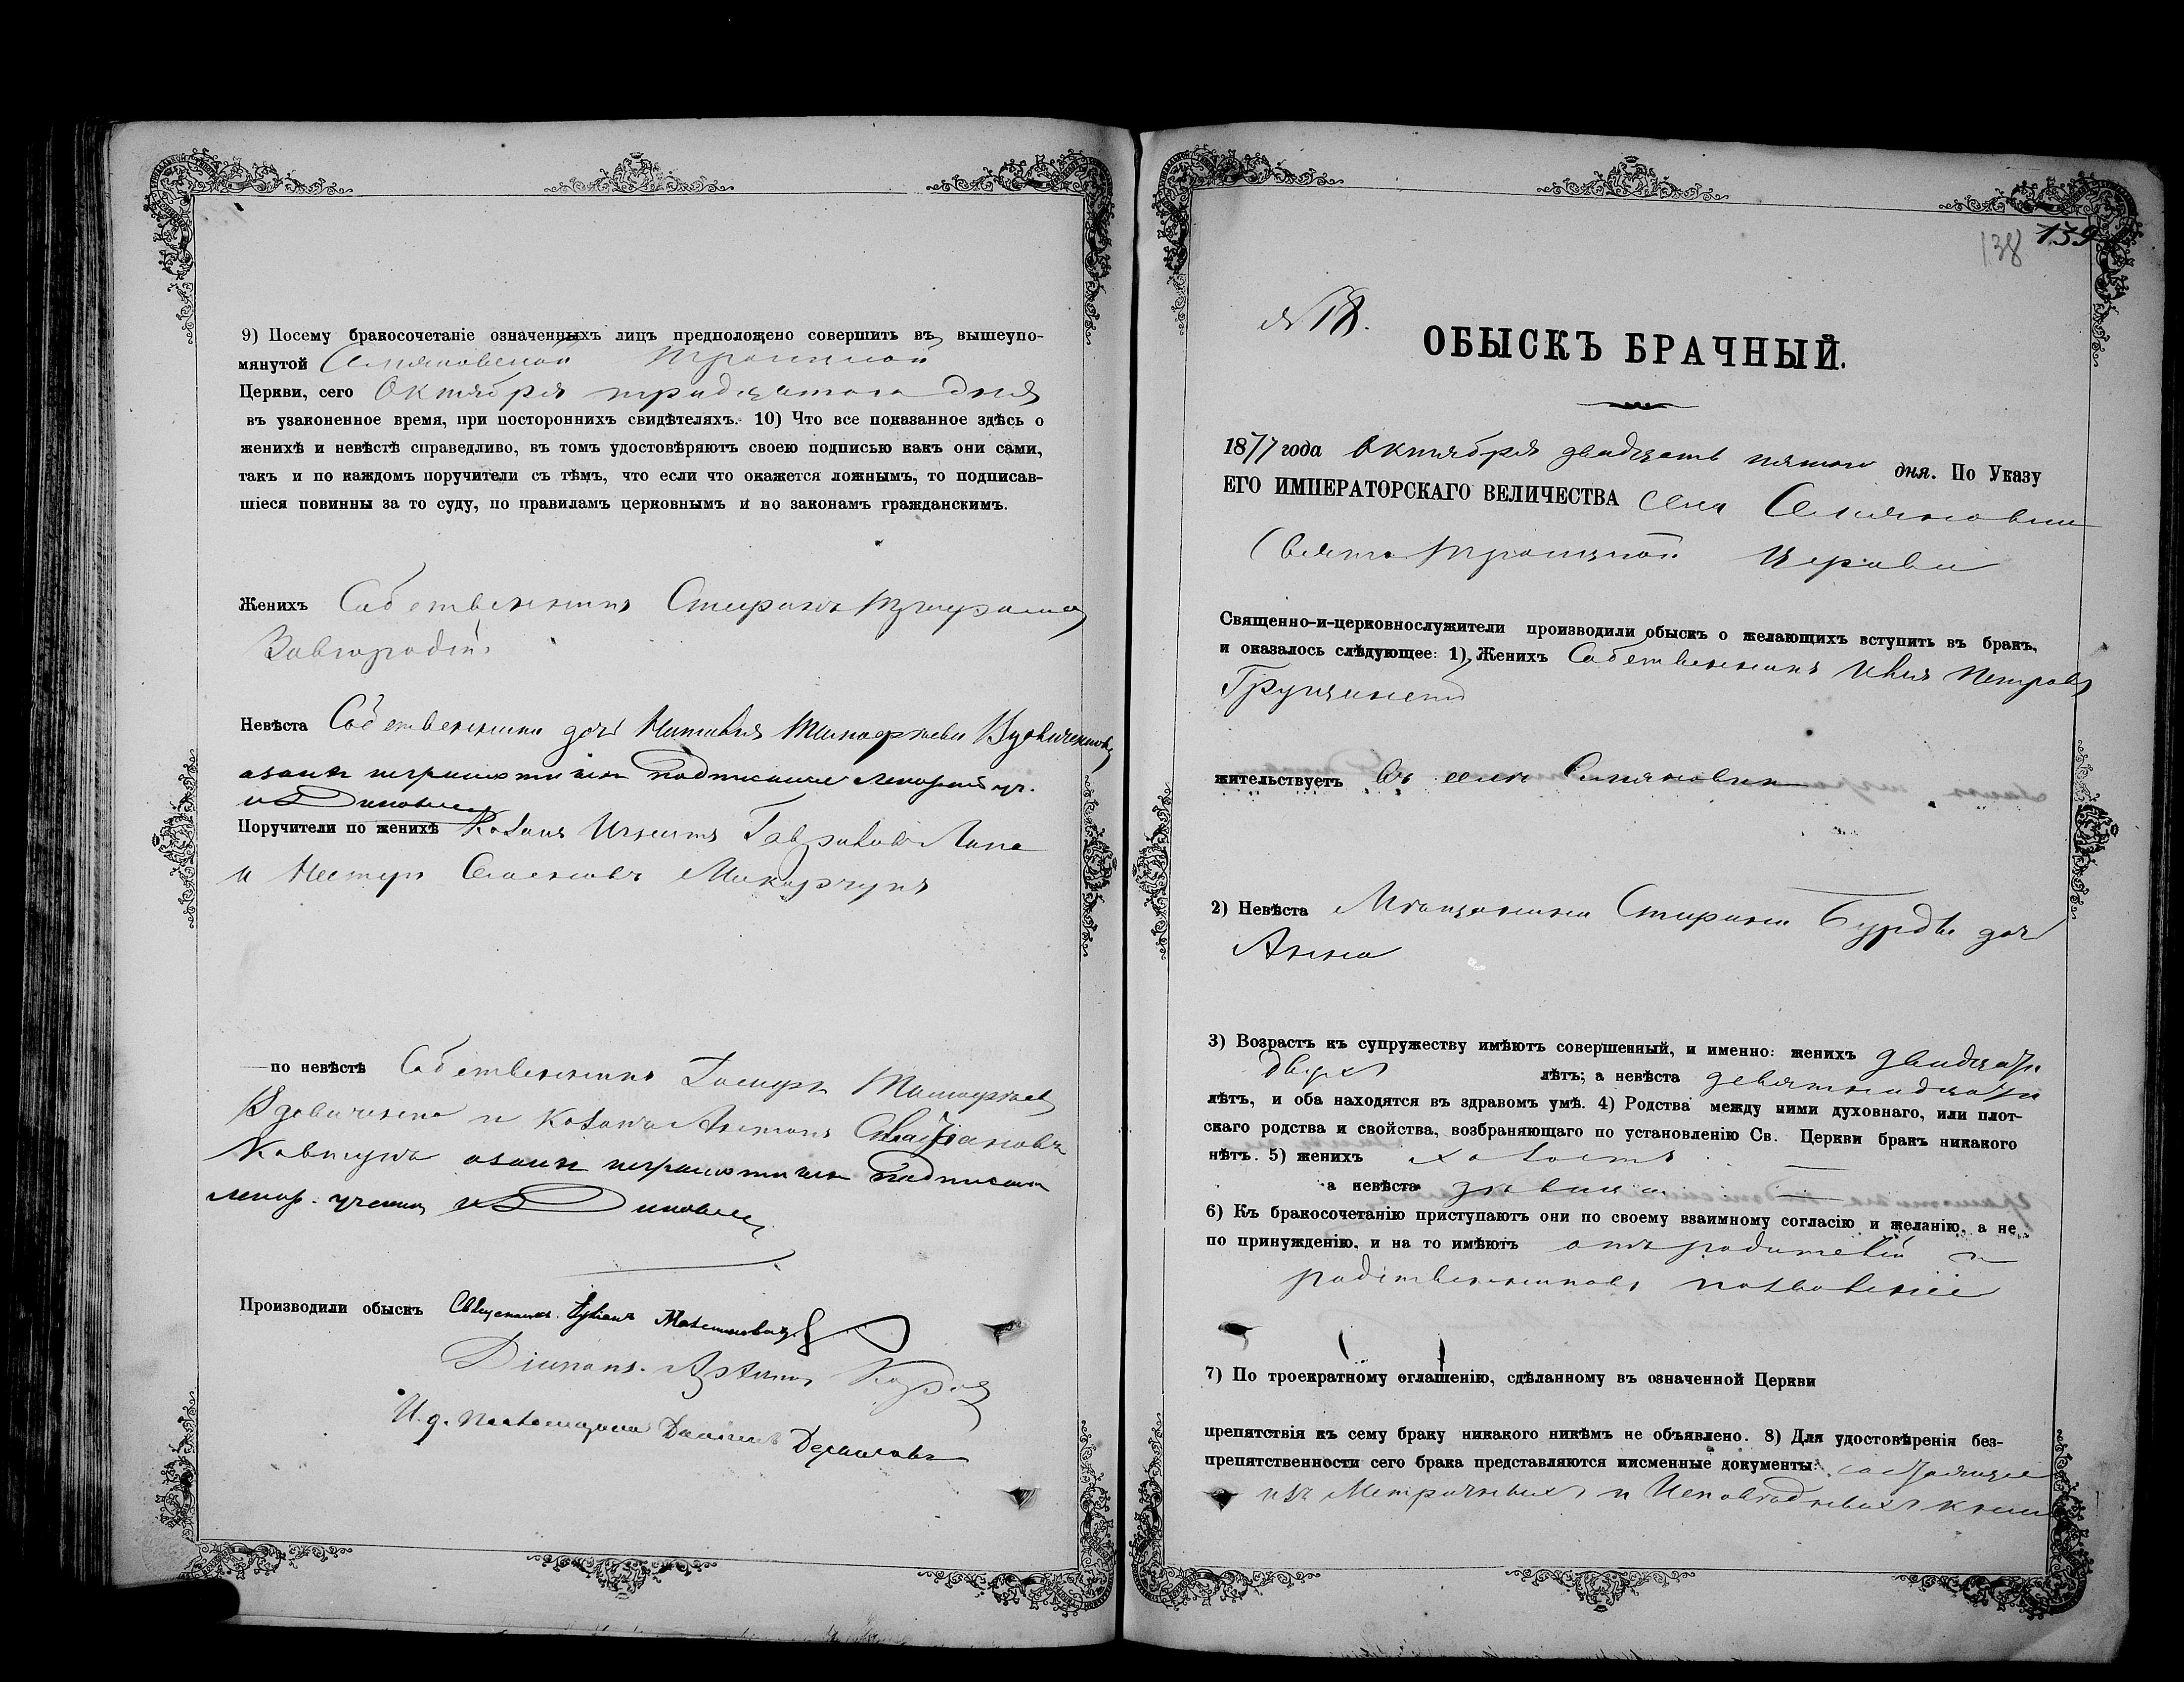 9) Посему бракосочетаніе означенныхъ лицъ предположено совершить въ вышеупо-
мянутой Троицкой
Церкви, сего Октября тридцатого дня
въ узаконенное время, при постороннихъ свидѣтеляхъ. 10) Что все показанное здѣсь о
женихѣ и невѣстѣ справедливо, въ томъ удостовѣряютъ своею подписью какъ они сами,
такъ и по каждомъ поручители съ тѣмъ, что если что окажется ложнымъ, то подписав-
шіеся повинны за то суду, по правиламъ церковнымъ и по законамъ гражданскимъ.
Женихъ Собственникъ
Завгородній
Невѣста Собственника дочь Наталія Вдовиченкова
Поручители по женихѣ Козакъ Игнатъ Гавриловъ Лапа
и Нестеръ
по невѣстѣ Собственникъ Іосифъ
Вдовиченко и Козакъ Антонъ
Ковтунъ
Производили обыскъ Священникъ
Діаконъ
И. д. псаломщика Даніилъ
138 139
№ 18.
ОБЫСКЪ БРАЧНЫЙ.
1877 года Октября двадцать пятого дня. По Указу
ЕГО ИМПЕРАТОРСКАГО ВЕЛИЧЕСТВА села
Свято Троицкой Церкви
Священно-и-церковнослужители производили обыскъ о желающихъ вступить въ бракъ,
и оказалось слѣдующее: 1) Женихъ Собственникъ Илія Петровъ
жительствуетъ въ селѣ
2) Невѣста Мѣщанина дочь
Анна
3) Возрастъ къ супружеству имѣютъ совершенный, и именно: женихъ двадцати
двухъ лѣтъ; а невѣста девятнадцати
лѣтъ, и оба находятся въ здравомъ умѣ. 4) Родства между ними духовнаго, или плот-
скаго родства и свойства, возбраняющаго по установленію Св. Церкви бракъ никакого
нѣтъ. 5) женихъ холостъ
а невѣста дѣвица
6) Къ бракосочетанію приступаютъ они по своему взаимному согласію и желанію, а не
по принужденію, и на то имѣютъ отъ родителей и
родственниковъ позволеніе
7) По троекратному оглашенію, сдѣланному въ означенной Церкви
препятствія къ сему браку никакого никѣмъ не объявлено. 8) Для удостовѣренія без-
препятственности сего брака представляются писменные документы:
изъ Метричныхъ и Исповѣдныхъ книг